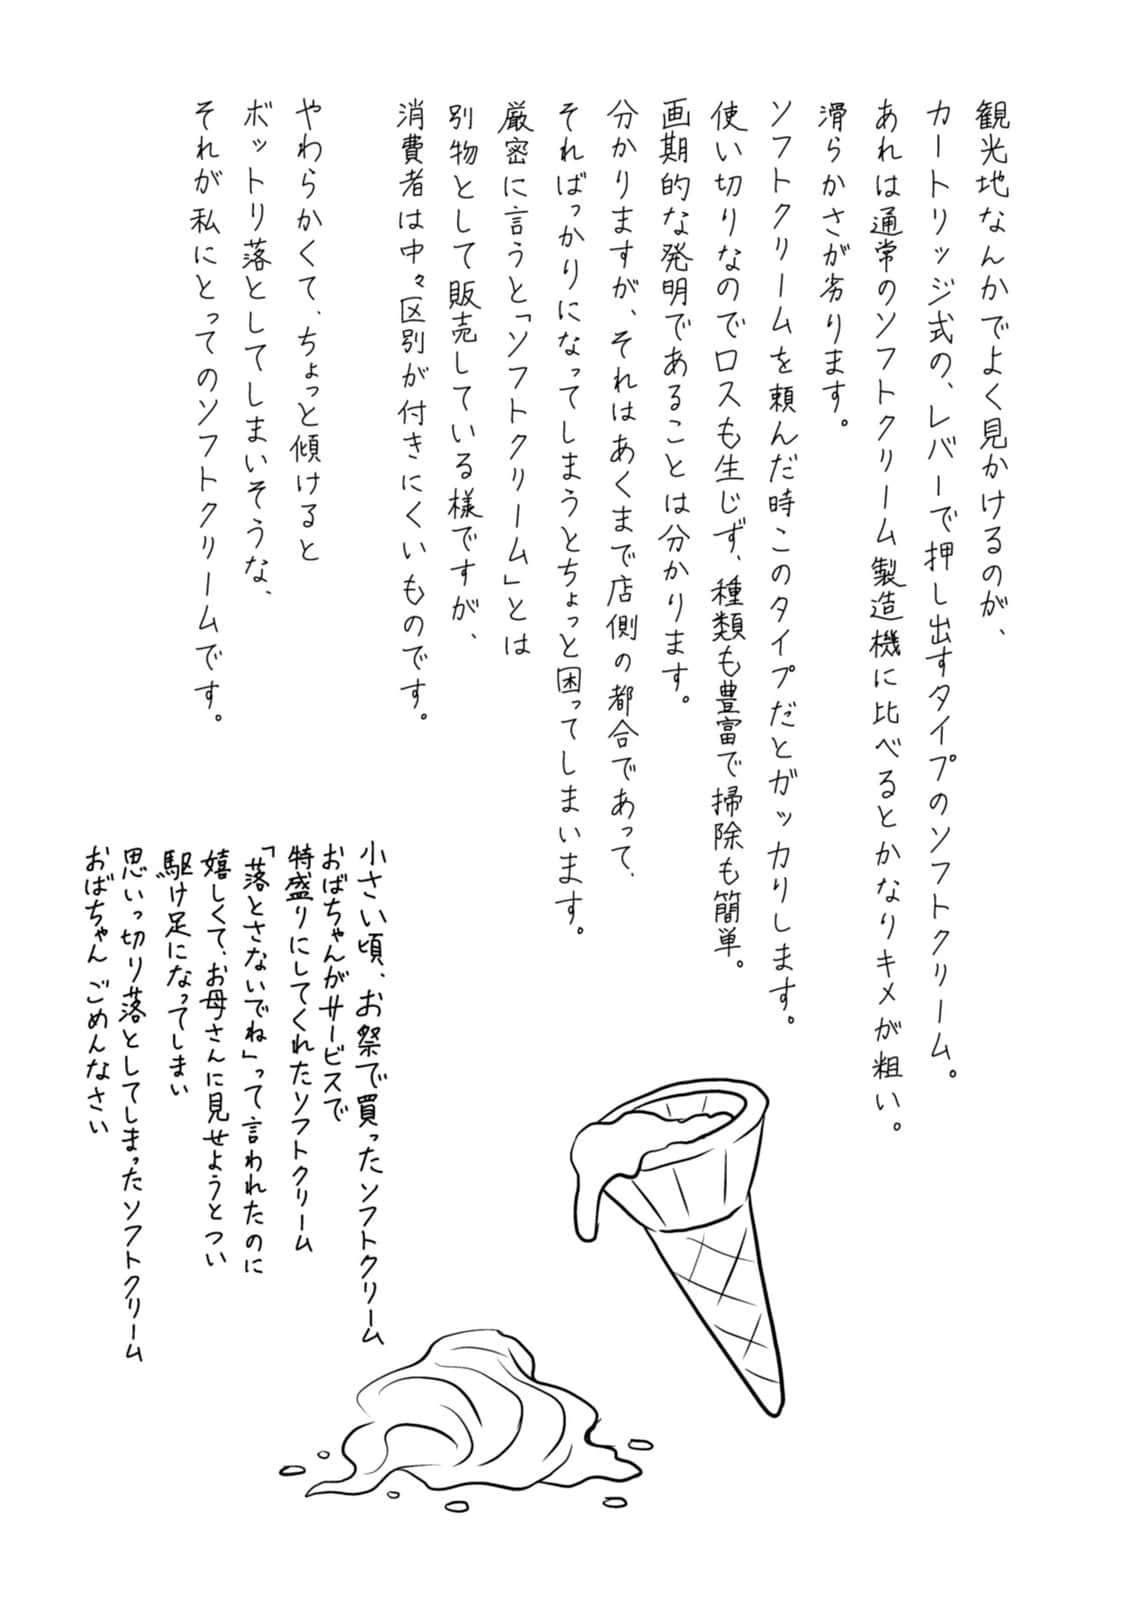 観光地なんかでよく見かけるのが、
カートリッジ式の、レバーで押し出すタイプのソフトクリーム。
あれは通常のソフトクリーム製造機に比べるとかなりキメが粗い。
滑らかさが劣ります。
ソフトクリームを頼んだ時このタイプだとガッカリします。
使い切りなのでロスも生じず、種類も豊富で掃除も簡単。
画期的な発明であることは分かります。
分かりますが、それはあくまで店側の都合であって、
そればっかりになってしまうとちょっと困ってしまいます。
厳密に言うと「ソフトクリーム」とは
別物として販売している様ですが、
消費者は中々区別が付きにくいものです。
やわらかくて、ちょっと傾けると
ボットリ落としてしまいそうな、
それが私にとってのソフトクリームです。
小さい頃、お祭で買ったソフトクリーム
おばちゃんがサービスで
特盛りにしてくれたソフトクリーム
「落とさないでね」って言われたのに
嬉しくて、お母さんに見せようとつい
駆け足になってしまい
思いっ切り落としてしまったソフトクリーム
おばちゃんごめんなさい